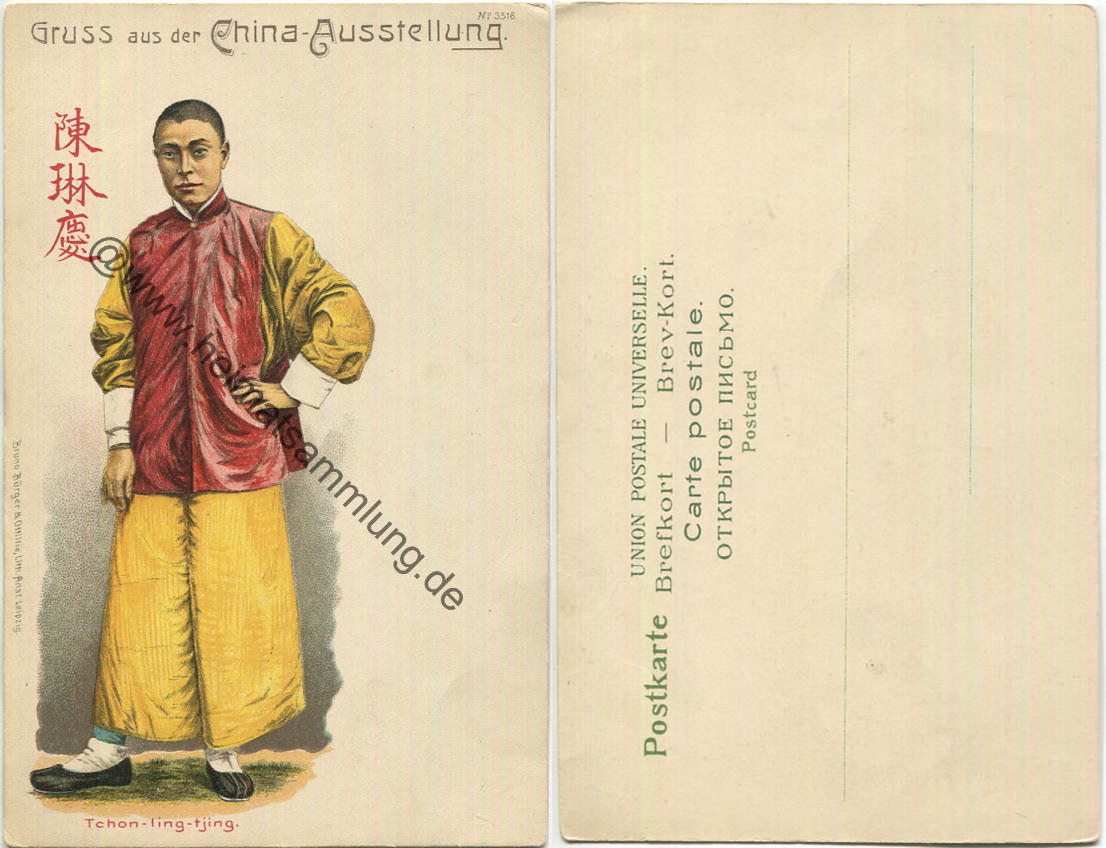 Nº 3516.
Gruss aus der China-Ausstellung.
陳琳慶
@www.heimatsammlung.de
Bruno Bürger & Ottillie, Lith. Anst. Leipzig.
Tchon-ling-tjing.
UNION POSTALE UNIVERSELLE.
Postkarte Brefkort — Brev-Kort.
Carte postale.
ОТКРЫТОЕ ПИСЬМО.
Postcard